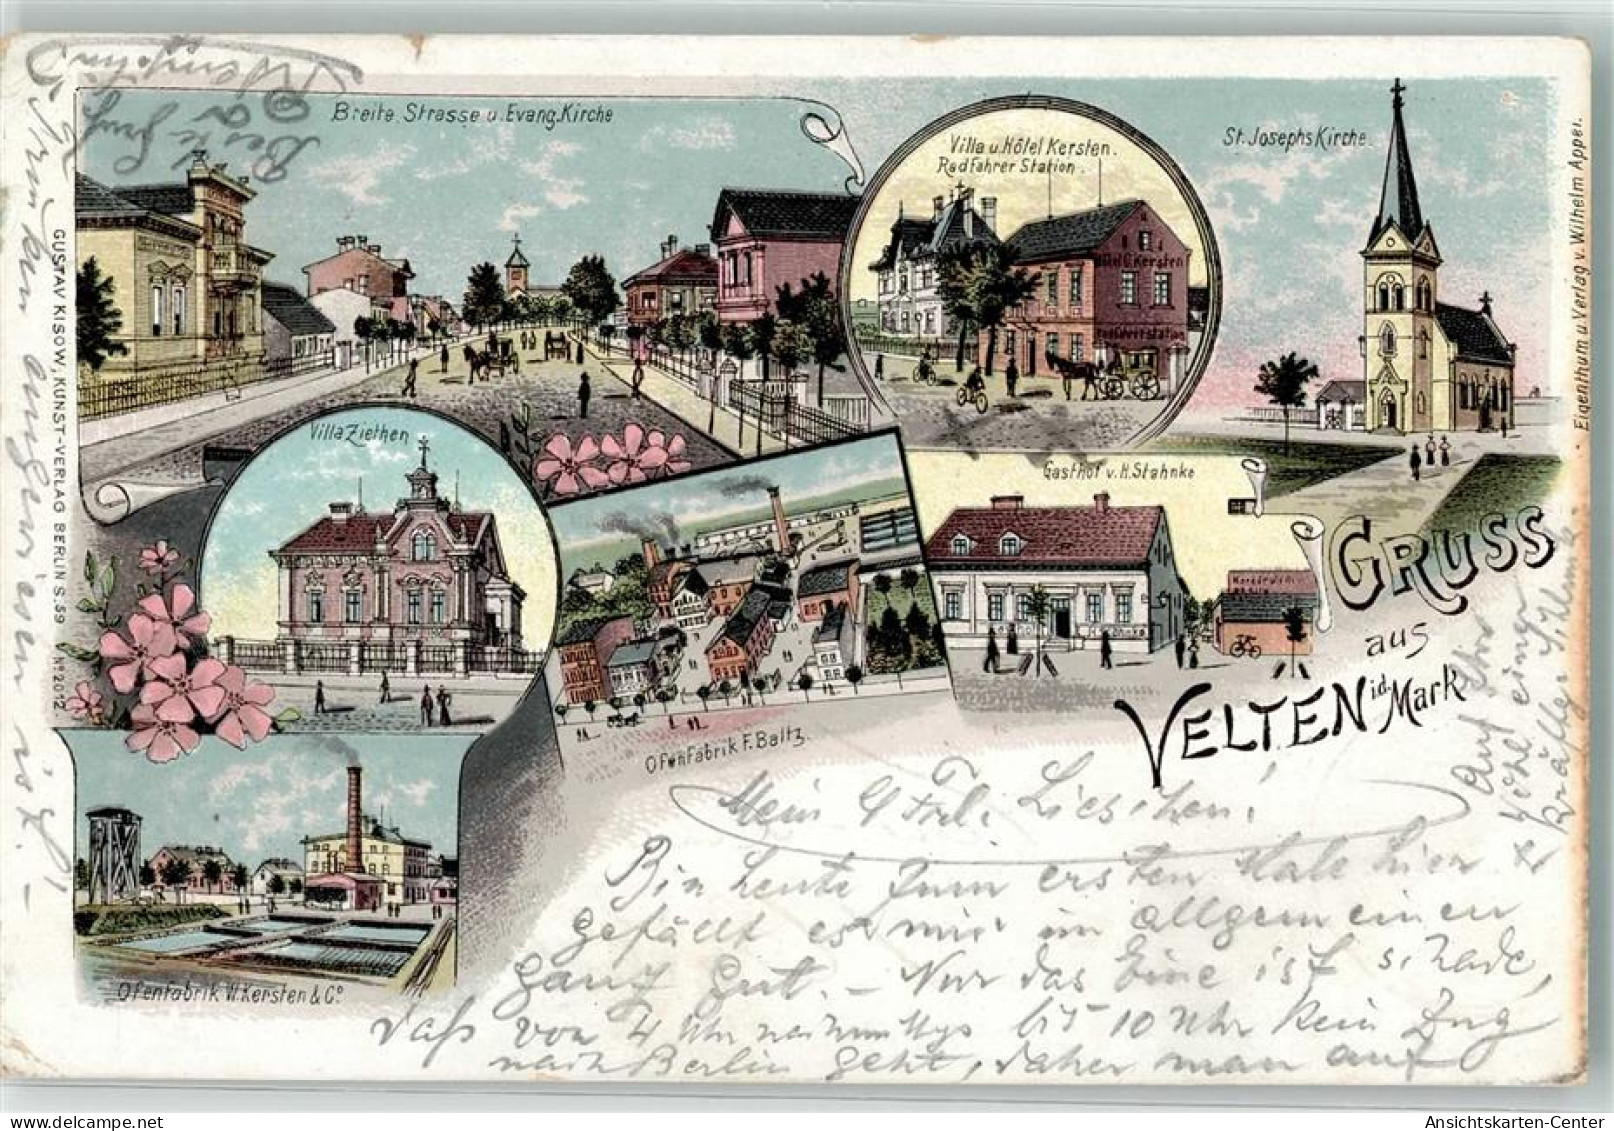 Breite Strasse u. Evang. Kirche
Villa u. Hôtel Kersten.
Radfahrer Station.
St. Josephs Kirche.
Villa Ziethen
Gasthof v. H. Stahnke
Ofenfabrik F. Baltz
Ofenfabrik W. Kersten & Co.
GRUSS
aus
VELTEN i.d. Mark
GUSTAV KISOW, KUNST-VERLAG BERLIN S. 59 No 12072
Eigenthum u. Verlag v. Wilhelm Appel.
Mein Frl. Lieschen!
Bin heute zum ersten Male hier
gefällt es mir im allgemeinen
ganz gut. – Nur das Eine ist schade,
daß von 4 Uhr nachmittgs bis 10 Uhr kein Zug
nach Berlin geht, daher man auf
angewiesen ist. –
Beste
Ansichtskarten-Center